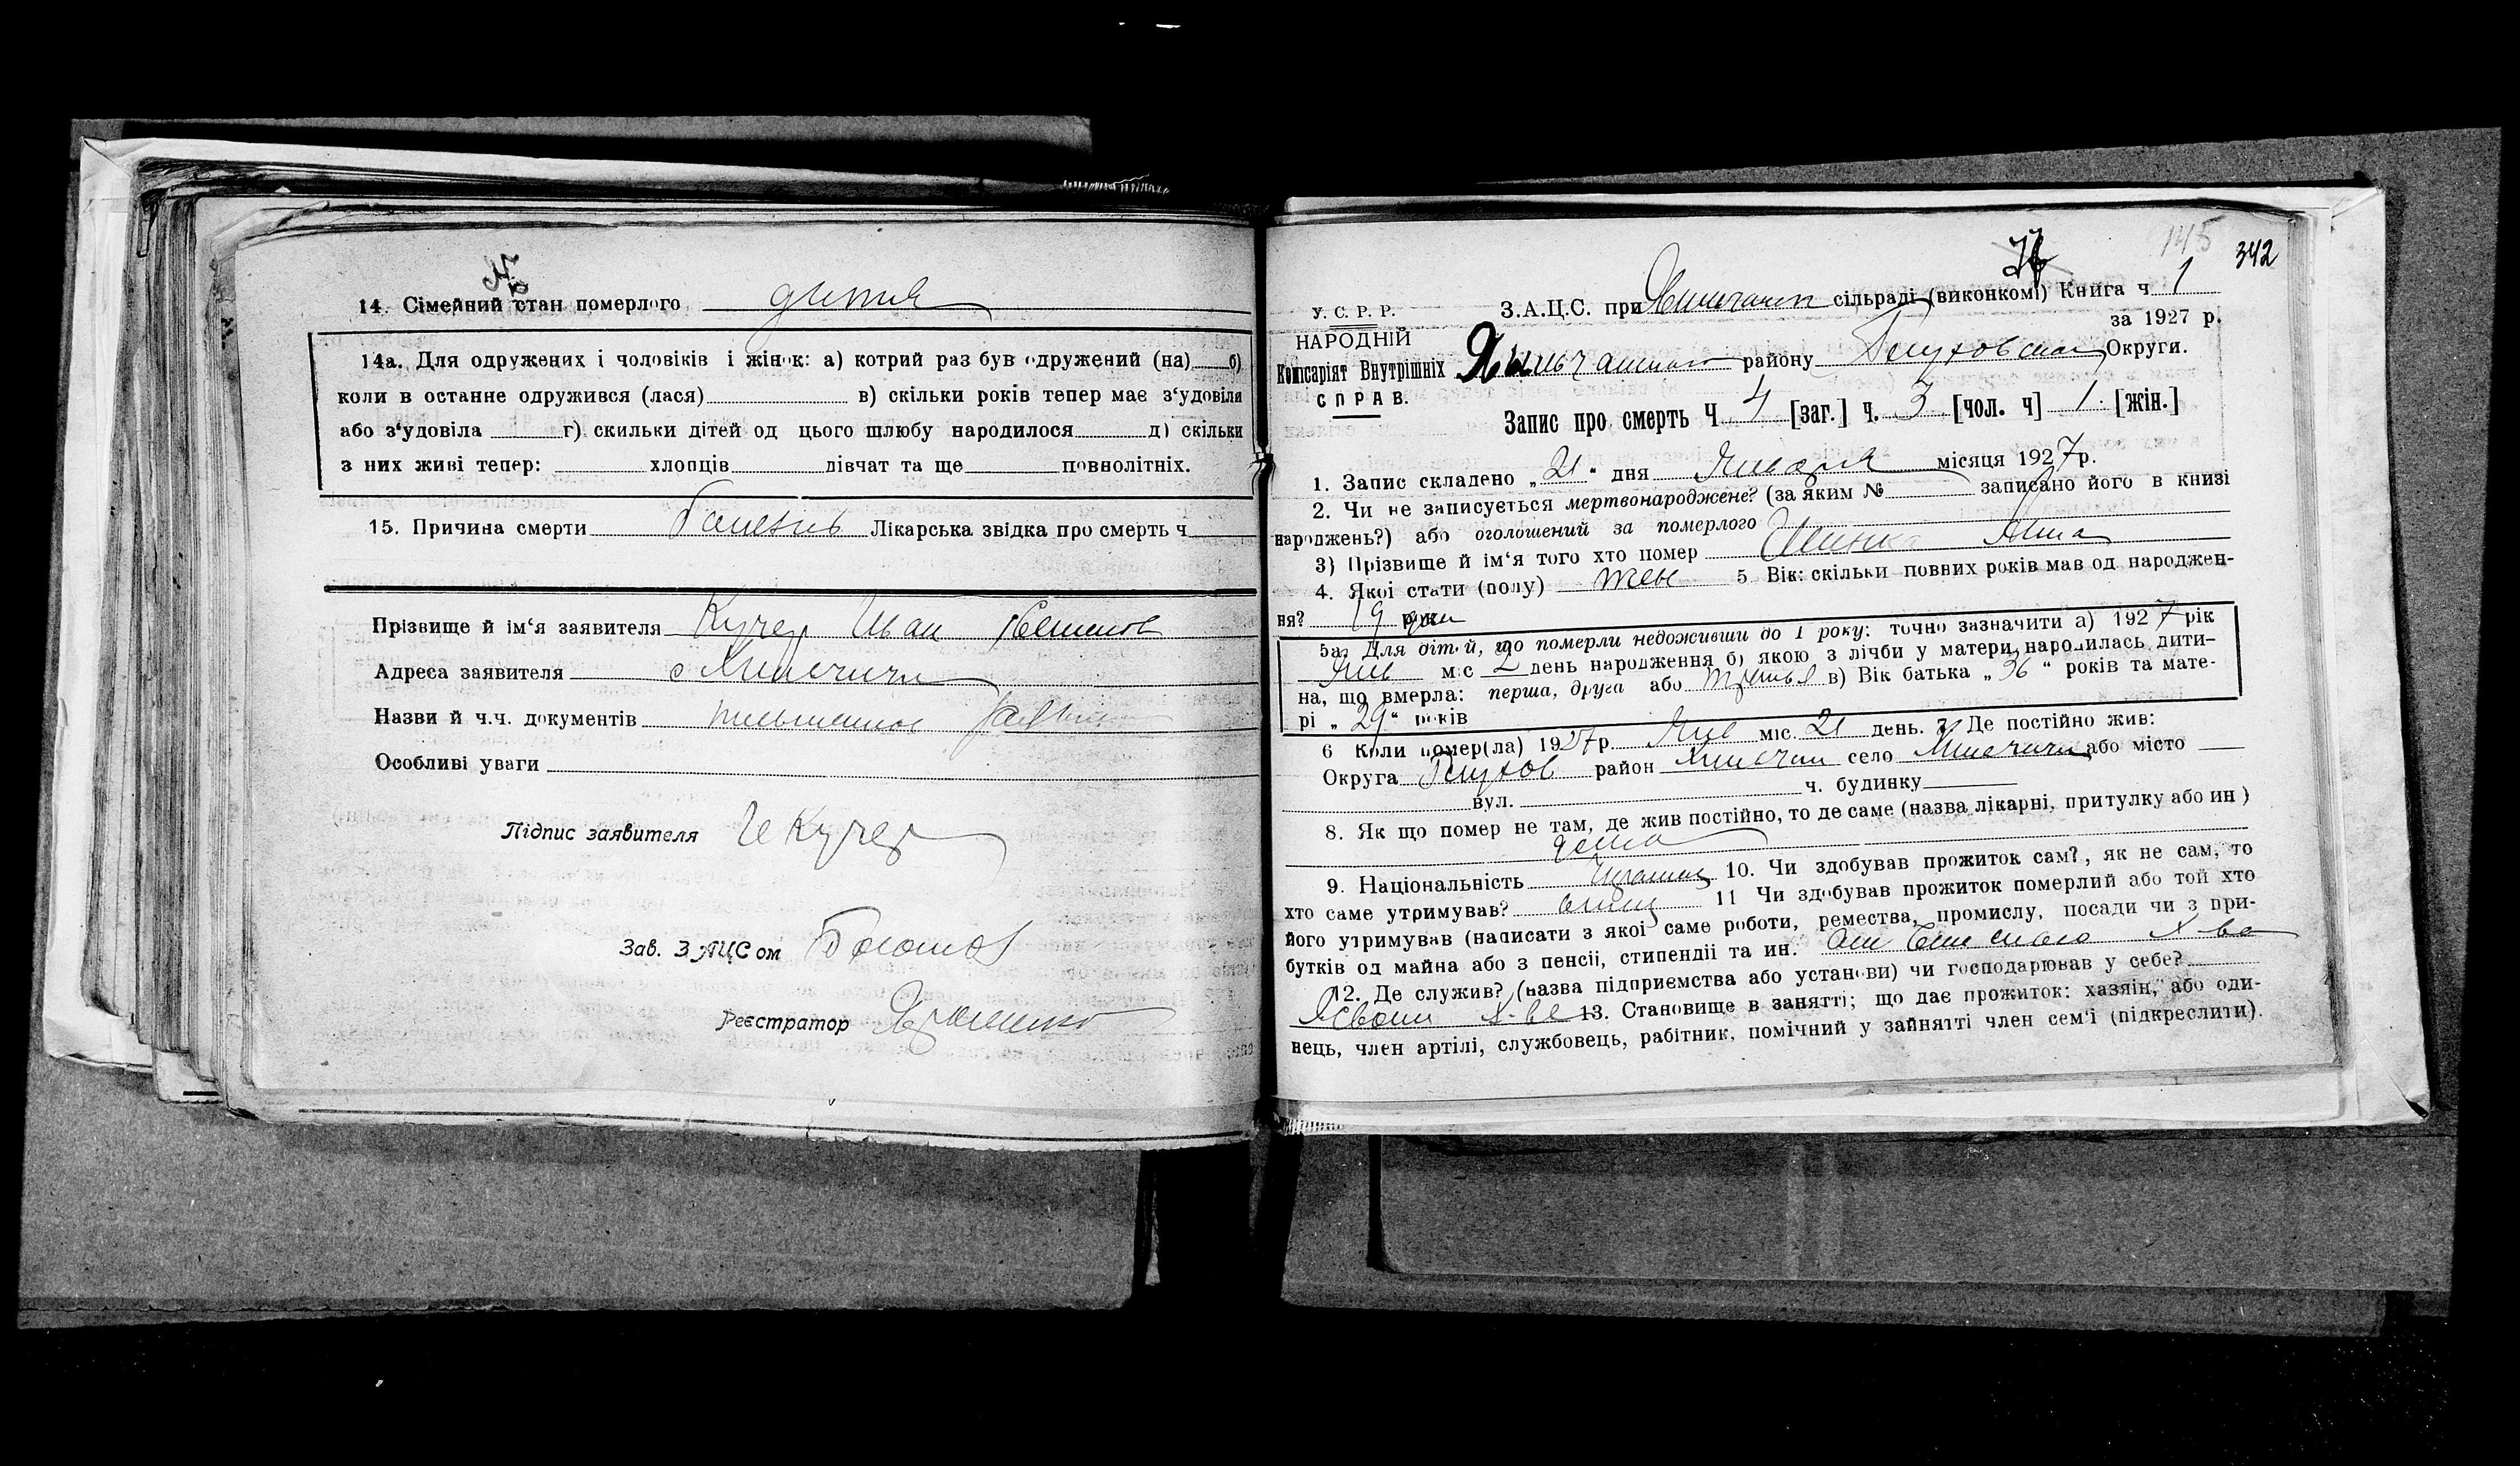 14. Сімейний стан померлого дитя
14а. Для одружених і чоловіків і жінок: а) котрий раз був одружений (на) б)
коли в останне одружився (лася) в) скільки років тепер має з‘удовіля
або з‘удовіла г) скильки дітей од цього шлюбу народилося д) скільки
з них живі тепер: хлопців дівчат та ще повнолітніх.
15. Причина смерти болезнь Лікарська звідка про смерть ч
Прізвище й ім‘я заявителя Кучер Иван
Адреса заявителя с
Назви й ч.ч. документів
Особливі уваги
Підпис заявителя И Кучер
Зав. З АЦС ом
Реєстратор
145 342
У. С. Р. Р.
НАРОДНІЙ
Комісаріят Внутрішніх
СПРАВ.
З.А.Ц.С. при сільраді (виконкомі) Книга ч 1
за 1927 р.
району Глуховской Округи.
Запис про смерть Ч 4 [заг.] ч. 3 [чол. ч] 1. [жін.]
1. Запис складено „21“ дня Января місяця 1927 р.
2. Чи не записується мертвонароджене? (за яким № записано його в книзі
народжень?) або оголошений за померлого
3) Прізвище й ім‘я того хто помер Анна
4. Якої стати (полу) жен 5. Вік: скільки повних років мав од народжен-
ня? 19 дни
5а. Для дітей, що померли недоживши до 1 року: точно зазначити а) 1927 рік
Янв м с 2 день народження б) якою з лічби у матери народилась дити-
на, що вмерла: перша, друга або третья в) Вік батька „36“ років та мате-
рі „29“ років
6 Коли помер(ла) 1927 р. Янв міс. 21 день. 7. Де постійно жив:
Округа Глухов район село або місто
вул. ч. будинку
8. Як що помер не там, де жив постійно, то де саме (назва лікарні, притулку або ин )
дома
9. Національність 10. Чи здобував прожиток сам?, як не сам, то
хто саме утримував? отец 11 Чи здобував прожиток померлий або той хто
його утримував (написати з якої саме роботи, ремества, промислу, посади чи з при-
бутків од майна або з пенсії, стипендії та ин. от сельского х-ва
12. Де служив? (назва підприємства або установи) чи господарював у себе?
х-ве 13. Становище в занятті; що дає прожиток: хазяїн, або оди-
нець, член артілі, службовець, рабітник, помічний у зайнятті член сем‘і (підкреслити).